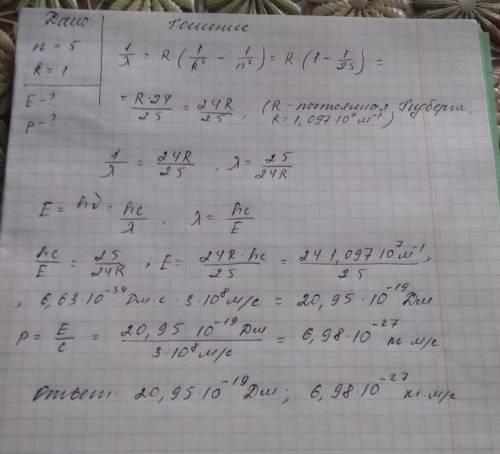 Дано
Решение
n = 5
k = 1
E - ?
p - ?
1/λ = R (1/k² - 1/n²) = R · (1 - 1/25) =
= R·24/25 = 24R/25, (R - постоянная Ридберга
R = 1,097·10⁷ м⁻¹)
1/λ = 24R/25, λ = 25/24R
E = hν = hc/λ, λ = hc/E
hc/E = 25/24R, E = 24R·hc/25 = 24·1,097·10⁷ м⁻¹/25 ×
× 6,63·10⁻³⁴ Дж·с · 3·10⁸ м/с = 20,95·10⁻¹⁹ Дж
p = E/c = 20,95·10⁻¹⁹ Дж/3·10⁸ м/с = 6,98·10⁻²⁷ кг·м/с
Ответ: 20,95·10⁻¹⁹ Дж; 6,98·10⁻²⁷ кг·м/с